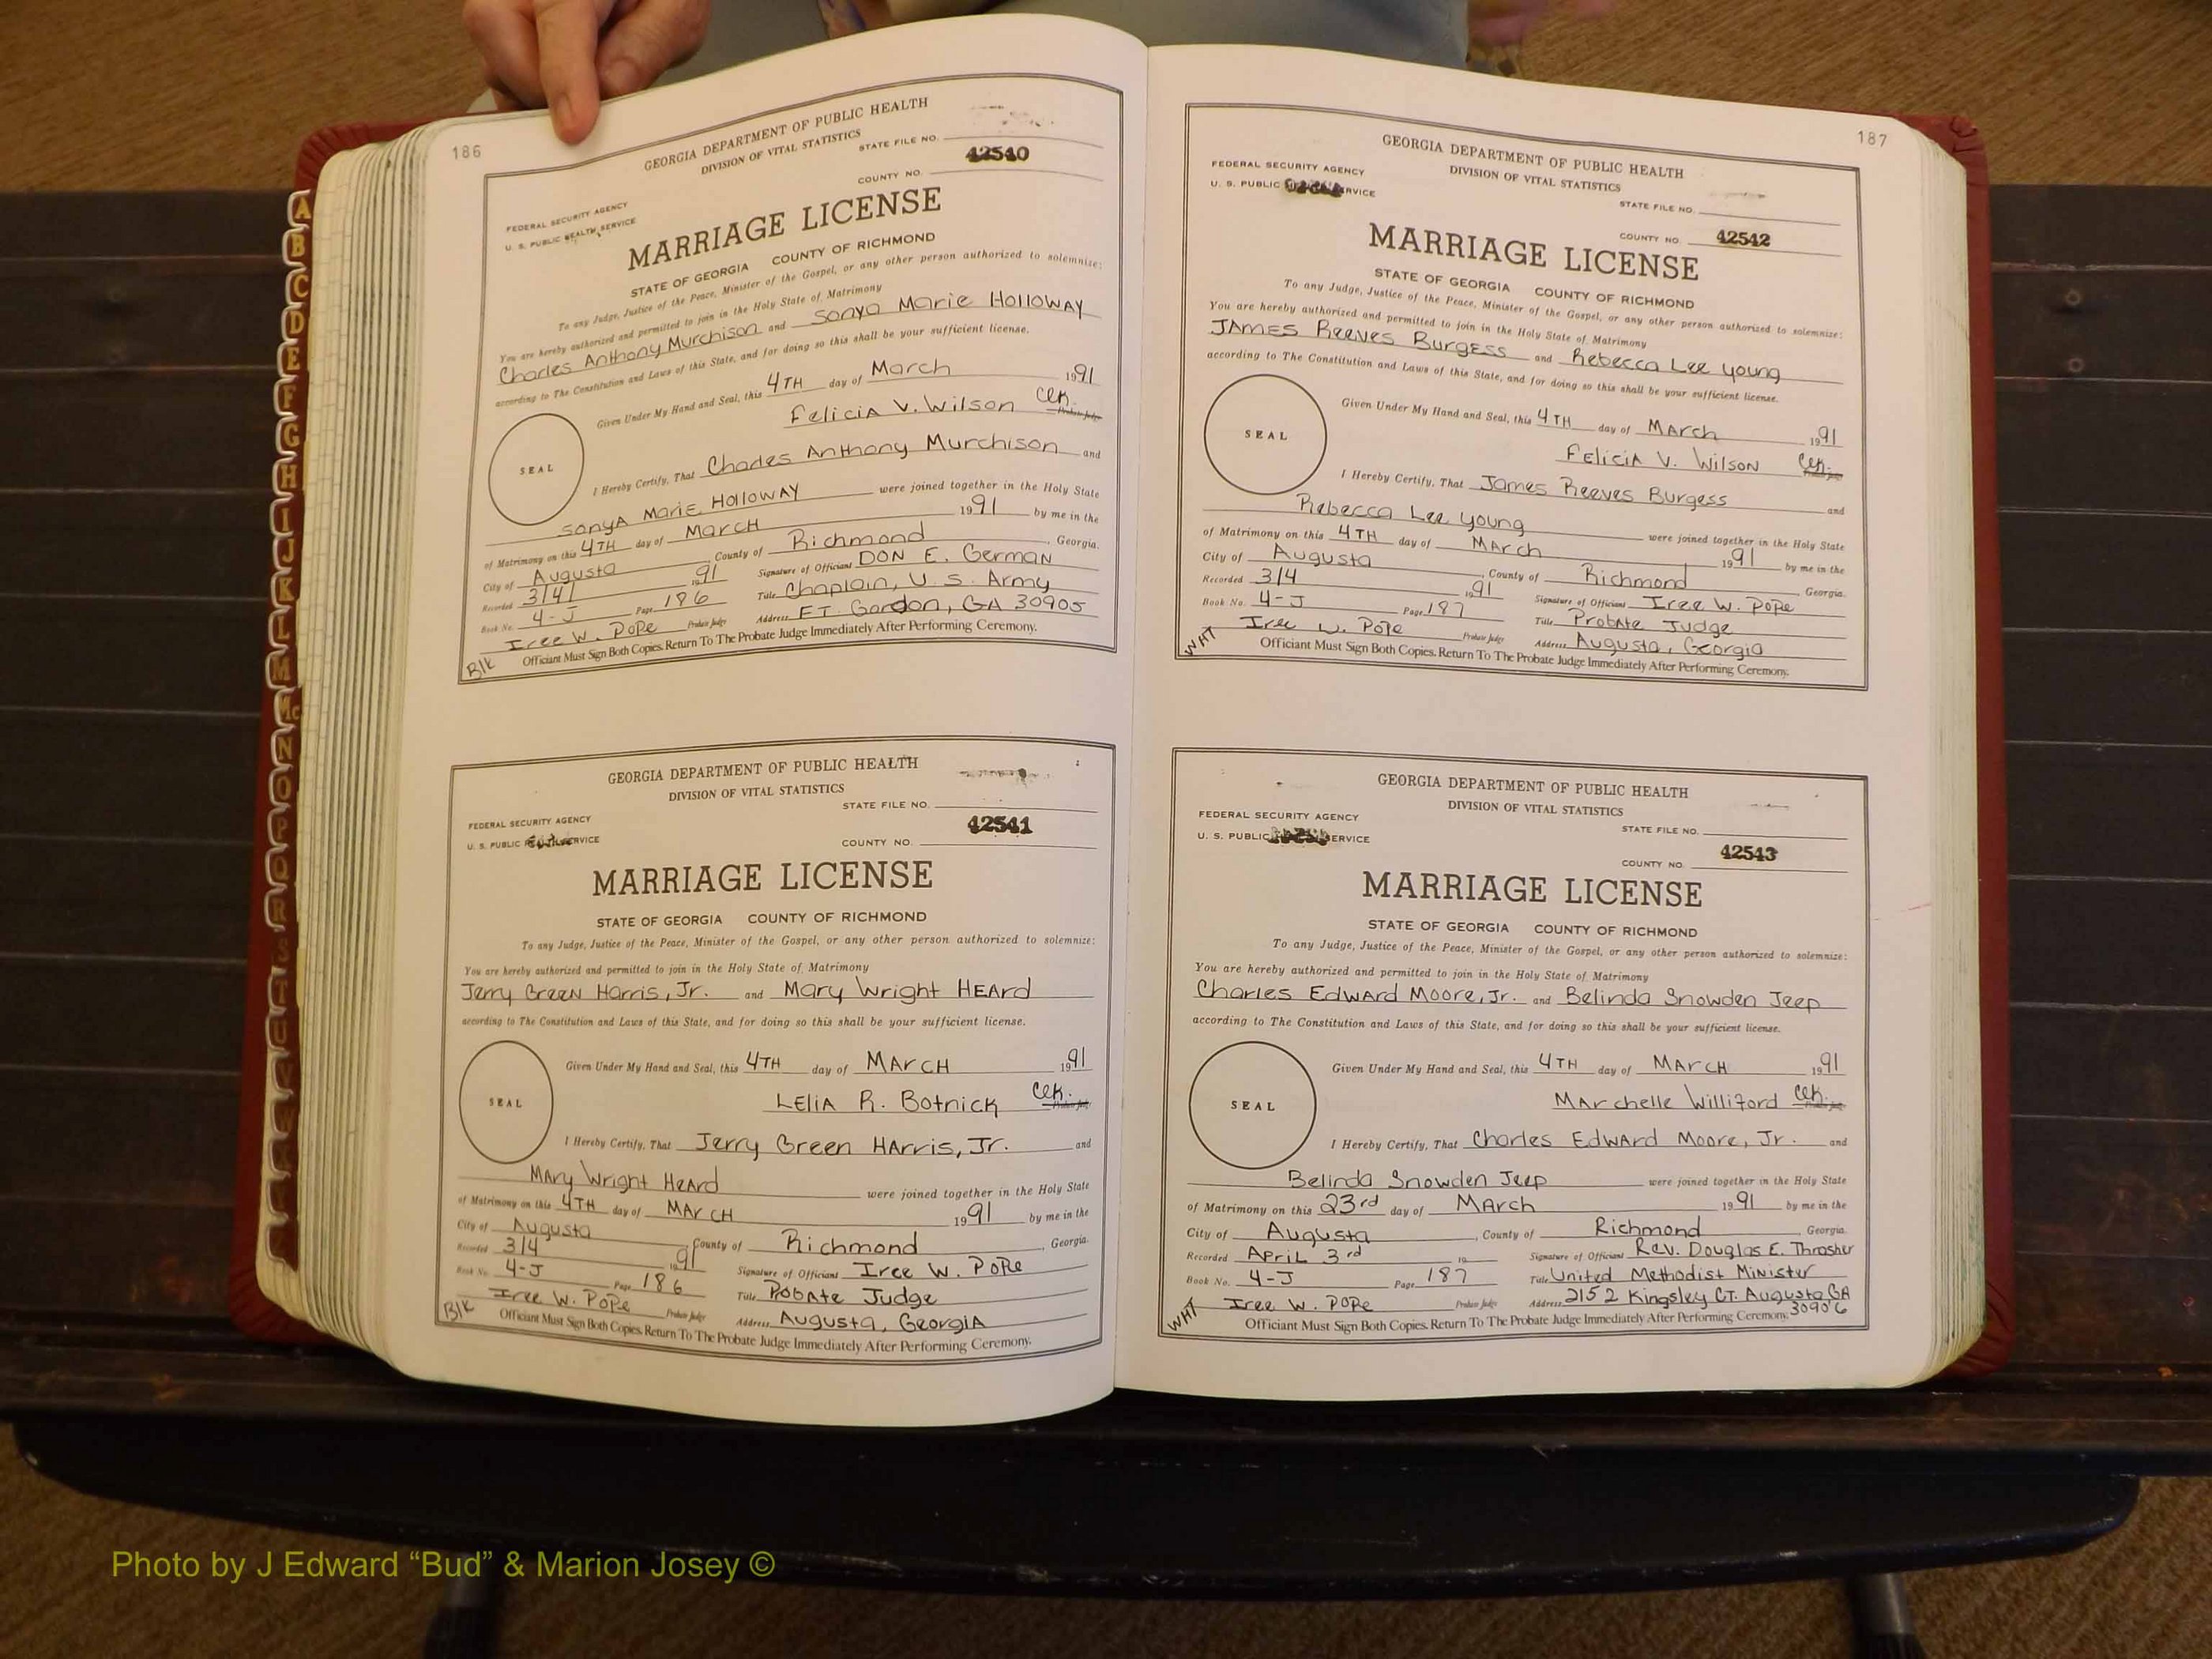 186
GEORGIA DEPARTMENT OF PUBLIC HEALTH
DIVISION OF VITAL STATISTICS
STATE FILE NO.
42540
COUNTY NO.
FEDERAL SECURITY AGENCY
U. S. PUBLIC HEALTH SERVICE
MARRIAGE LICENSE
STATE OF GEORGIA COUNTY OF RICHMOND
To any Judge, Justice of the Peace, Minister of the Gospel, or any other person authorized to solemnize:
You are hereby authorized and permitted to join in the Holy State of Matrimony
Charles Anthony Murchison and Sonya Marie Holloway
according to The Constitution and Laws of this State, and for doing so this shall be your sufficient license.
Given Under My Hand and Seal, this 4TH day of March 1991
Felicia V. Wilson Clk.
SEAL
I Hereby Certify, That Charles Anthony Murchison and
Sonya Marie Holloway were joined together in the Holy State
of Matrimony on this 4TH day of March 1991 by me in the
City of Augusta County of Richmond, Georgia.
Recorded 3/4/ 1991 Signature of Officiant DON E. German
Book No. 4-J Page 186 Title Chaplain, U.S. Army
Iree W. Pope Probate Judge Address FT. Gordon, GA 30905
Blk Officiant Must Sign Both Copies. Return To The Probate Judge Immediately After Performing Ceremony.
GEORGIA DEPARTMENT OF PUBLIC HEALTH
DIVISION OF VITAL STATISTICS
STATE FILE NO.
FEDERAL SECURITY AGENCY
42541
U. S. PUBLIC SERVICE
COUNTY NO.
MARRIAGE LICENSE
STATE OF GEORGIA COUNTY OF RICHMOND
To any Judge, Justice of the Peace, Minister of the Gospel, or any other person authorized to solemnize:
You are hereby authorized and permitted to join in the Holy State of Matrimony
Jerry Green Harris, Jr. and Mary Wright Heard
according to The Constitution and Laws of this State, and for doing so this shall be your sufficient license.
Given Under My Hand and Seal, this 4TH day of March 1991
Lelia R. Botnick Clk.
SEAL
I Hereby Certify, That Jerry Green Harris, Jr. and
Mary Wright Heard were joined together in the Holy State
of Matrimony on this 4TH day of March 1991 by me in the
City of Augusta County of Richmond, Georgia.
Recorded 3/4 1991 Signature of Officiant Iree W. Pope
Book No. 4-J Page 186 Title Pobate Judge
Iree W. Pope Probate Judge Address Augusta, Georgia
Blk Officiant Must Sign Both Copies. Return To The Probate Judge Immediately After Performing Ceremony.
187
GEORGIA DEPARTMENT OF PUBLIC HEALTH
DIVISION OF VITAL STATISTICS
FEDERAL SECURITY AGENCY
U. S. PUBLIC SERVICE
STATE FILE NO.
COUNTY NO. 42542
MARRIAGE LICENSE
STATE OF GEORGIA COUNTY OF RICHMOND
To any Judge, Justice of the Peace, Minister of the Gospel, or any other person authorized to solemnize:
You are hereby authorized and permitted to join in the Holy State of Matrimony
James Reeves Burgess and Rebecca Lee Young
according to The Constitution and Laws of this State, and for doing so this shall be your sufficient license.
Given Under My Hand and Seal, this 4TH day of March 1991
Felicia V. Wilson Clk.
SEAL
I Hereby Certify, That James Reeves Burgess and
Rebecca Lee Young were joined together in the Holy State
of Matrimony on this 4TH day of March 1991 by me in the
City of Augusta, County of Richmond, Georgia.
Recorded 3/4 1991 Signature of Officiant Iree W. Pope
Book No. 4-J Page 187 Title Probate Judge
Iree W. Pope Probate Judge Address Augusta, Georgia
WHT Officiant Must Sign Both Copies. Return To The Probate Judge Immediately After Performing Ceremony.
GEORGIA DEPARTMENT OF PUBLIC HEALTH
DIVISION OF VITAL STATISTICS
FEDERAL SECURITY AGENCY
STATE FILE NO.
U. S. PUBLIC SERVICE
42543
COUNTY NO.
MARRIAGE LICENSE
STATE OF GEORGIA COUNTY OF RICHMOND
To any Judge, Justice of the Peace, Minister of the Gospel, or any other person authorized to solemnize:
You are hereby authorized and permitted to join in the Holy State of Matrimony
Charles Edward Moore, Jr. and Belinda Snowden Jeep
according to The Constitution and Laws of this State, and for doing so this shall be your sufficient license.
Given Under My Hand and Seal, this 4TH day of March 1991
Marchelle Williford Clk.
SEAL
I Hereby Certify, That Charles Edward Moore, Jr. and
Belinda Snowden Jeep were joined together in the Holy State
of Matrimony on this 23rd day of March 1991 by me in the
City of Augusta, County of Richmond, Georgia.
Recorded April 3rd 19 Signature of Officiant Rev. Douglas E. Thrasher
Book No. 4-J Page 187 Title United Methodist Minister
Iree W. Pope Probate Judge Address 2152 Kingsley CT. Augusta GA
30906
WHT Officiant Must Sign Both Copies. Return To The Probate Judge Immediately After Performing Ceremony.
A
B
C
D
E
F
G
H
I
J
K
L
M
Mc
N
O
P
Q
R
S
T
U
V
Photo by J Edward “Bud” & Marion Josey ©